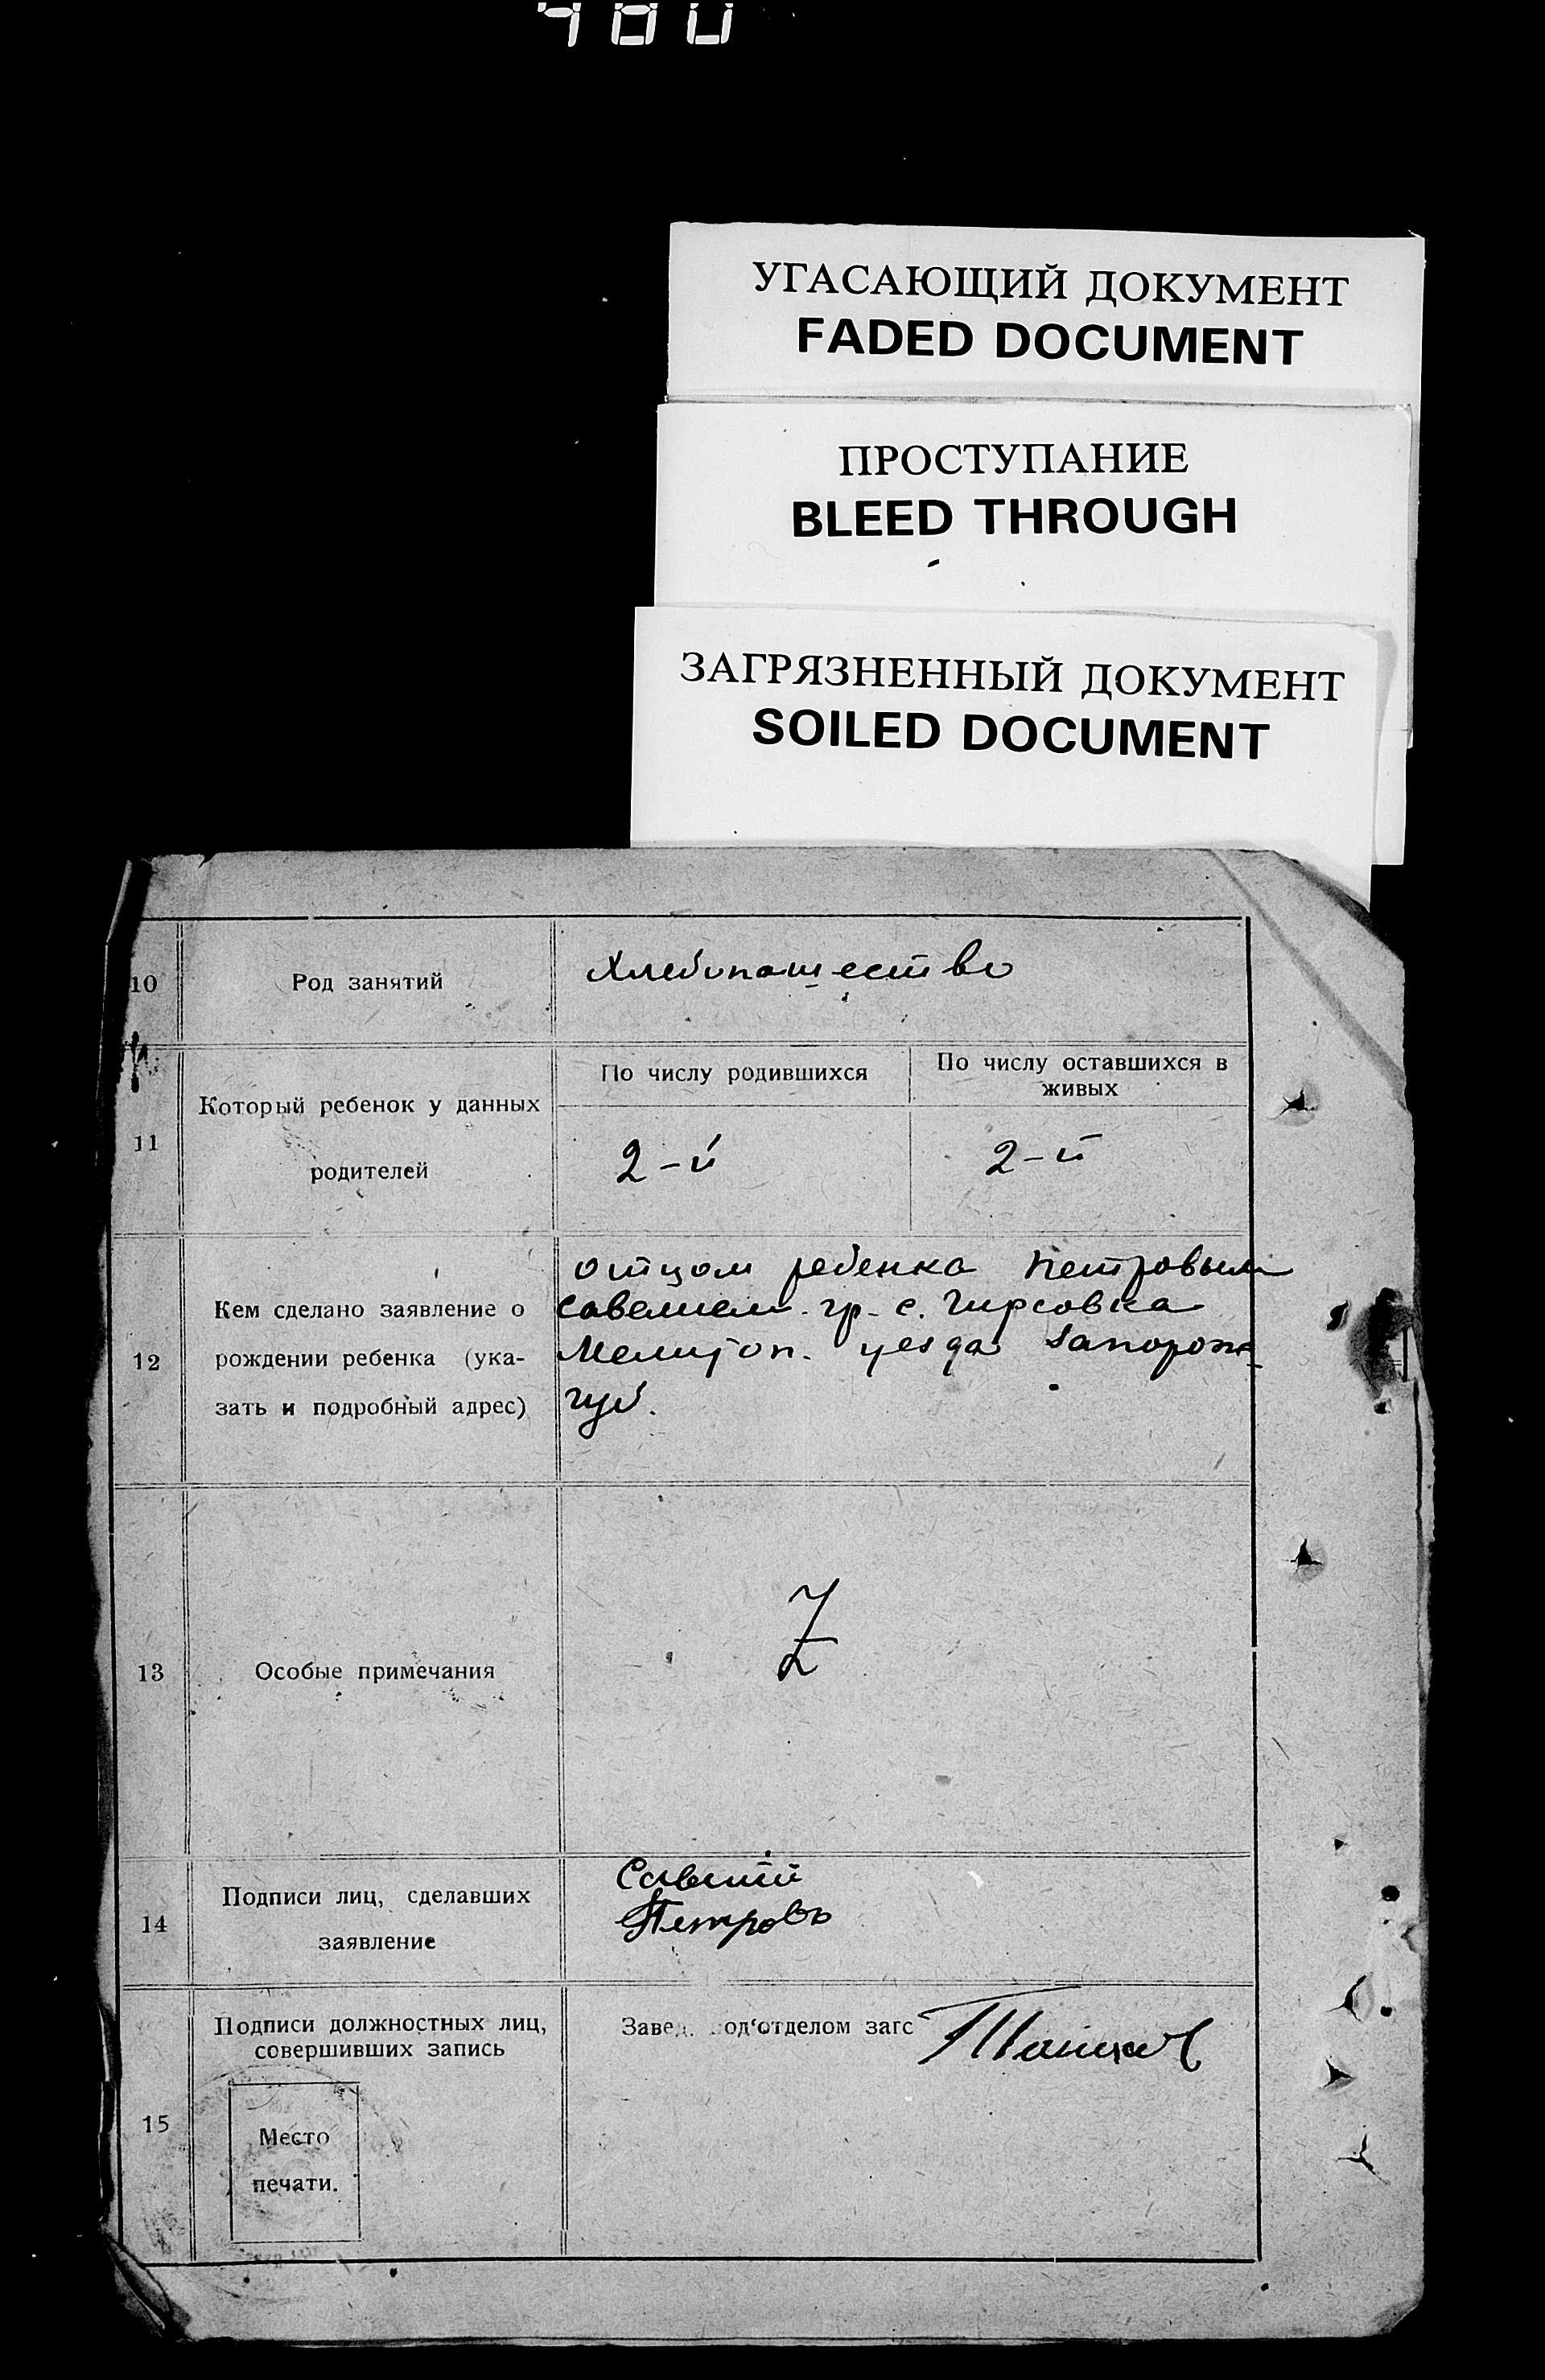 480
УГАСАЮЩИЙ ДОКУМЕНТ
FADED DOCUMENT
ПРОСТУПАНИЕ
BLEED THROUGH
ЗАГРЯЗНЕННЫЙ ДОКУМЕНТ
SOILED DOCUMENT
10
Род занятий
Хлебопашество
11
Который ребенок у данных
родителей
По числу родившихся
По числу оставшихся в
живых
2-й
2-й
12
Кем сделано заявление о
рождении ребенка (ука-
зать и подробный адрес)
отцом ребенка Петровым
Савелием гр. с. Гирсовка
Мелитоп. уезда Запорож
губ.
13
Особые примечания
Z
14
Подписи лиц, сделавших
заявление
Савелий
Петровъ
15
Подписи должностных лиц,
совершивших запись
Место
печати.
Завед. под'отделом загс